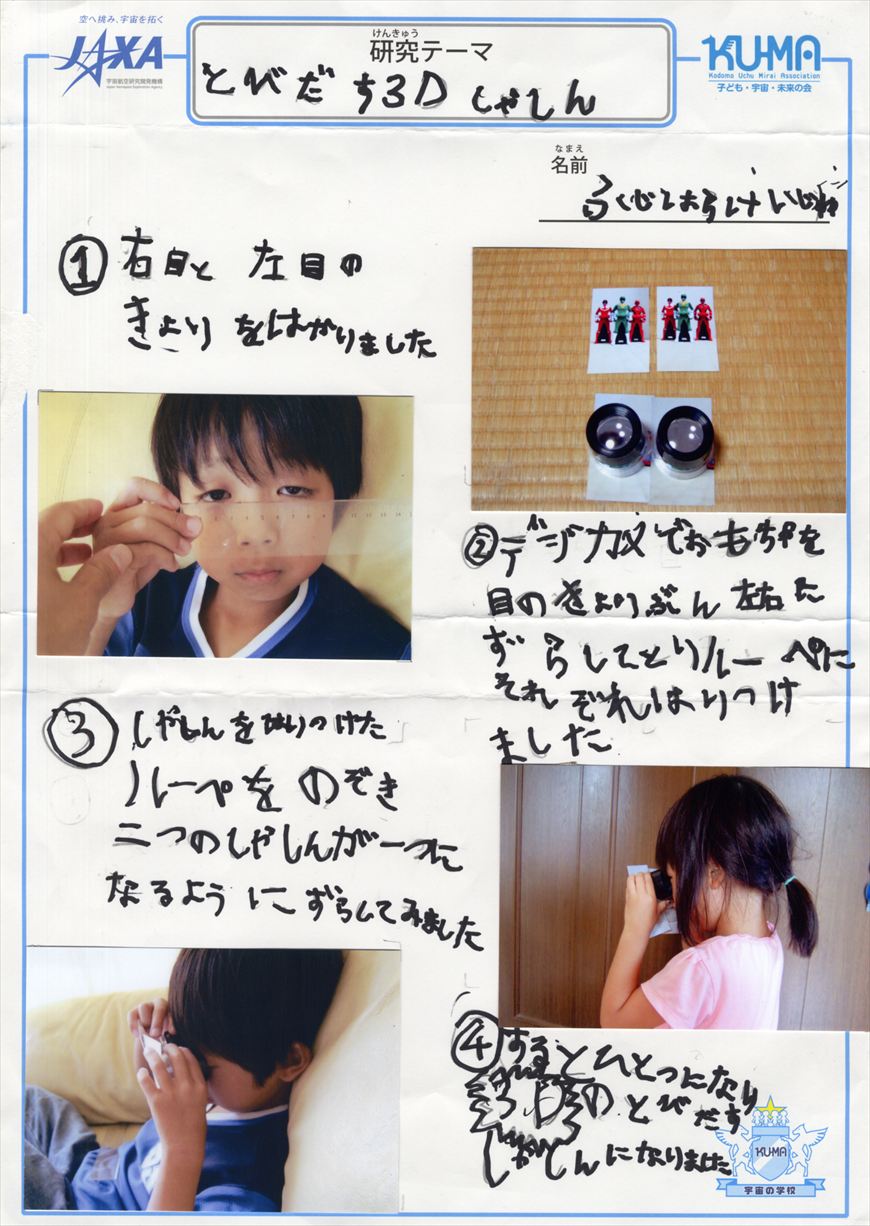 空へ挑み、宇宙を拓く
JAXA
宇宙航空研究開発機構
Japan Aerospace Exploration Agency
けんきゅう
研究テーマ
とびだす3Dしゃしん
KUMA
Kodomo Uchu Mirai Association
子ども・宇宙・未来の会
なまえ
名前
① 右目と左目の
きょりをはかりました
② デジカメでおもちゃを
目のきょりぶん左右に
ずらしてとりルーペに
それぞれはりつけ
ました
③ しゃしんをはりつけた
ルーペをのぞき
二つのしゃしんが一つに
なるようにずらしてみました
④ するとひとつになり
3Dのとびだす
しゃしんになりました
KUMA
宇宙の学校